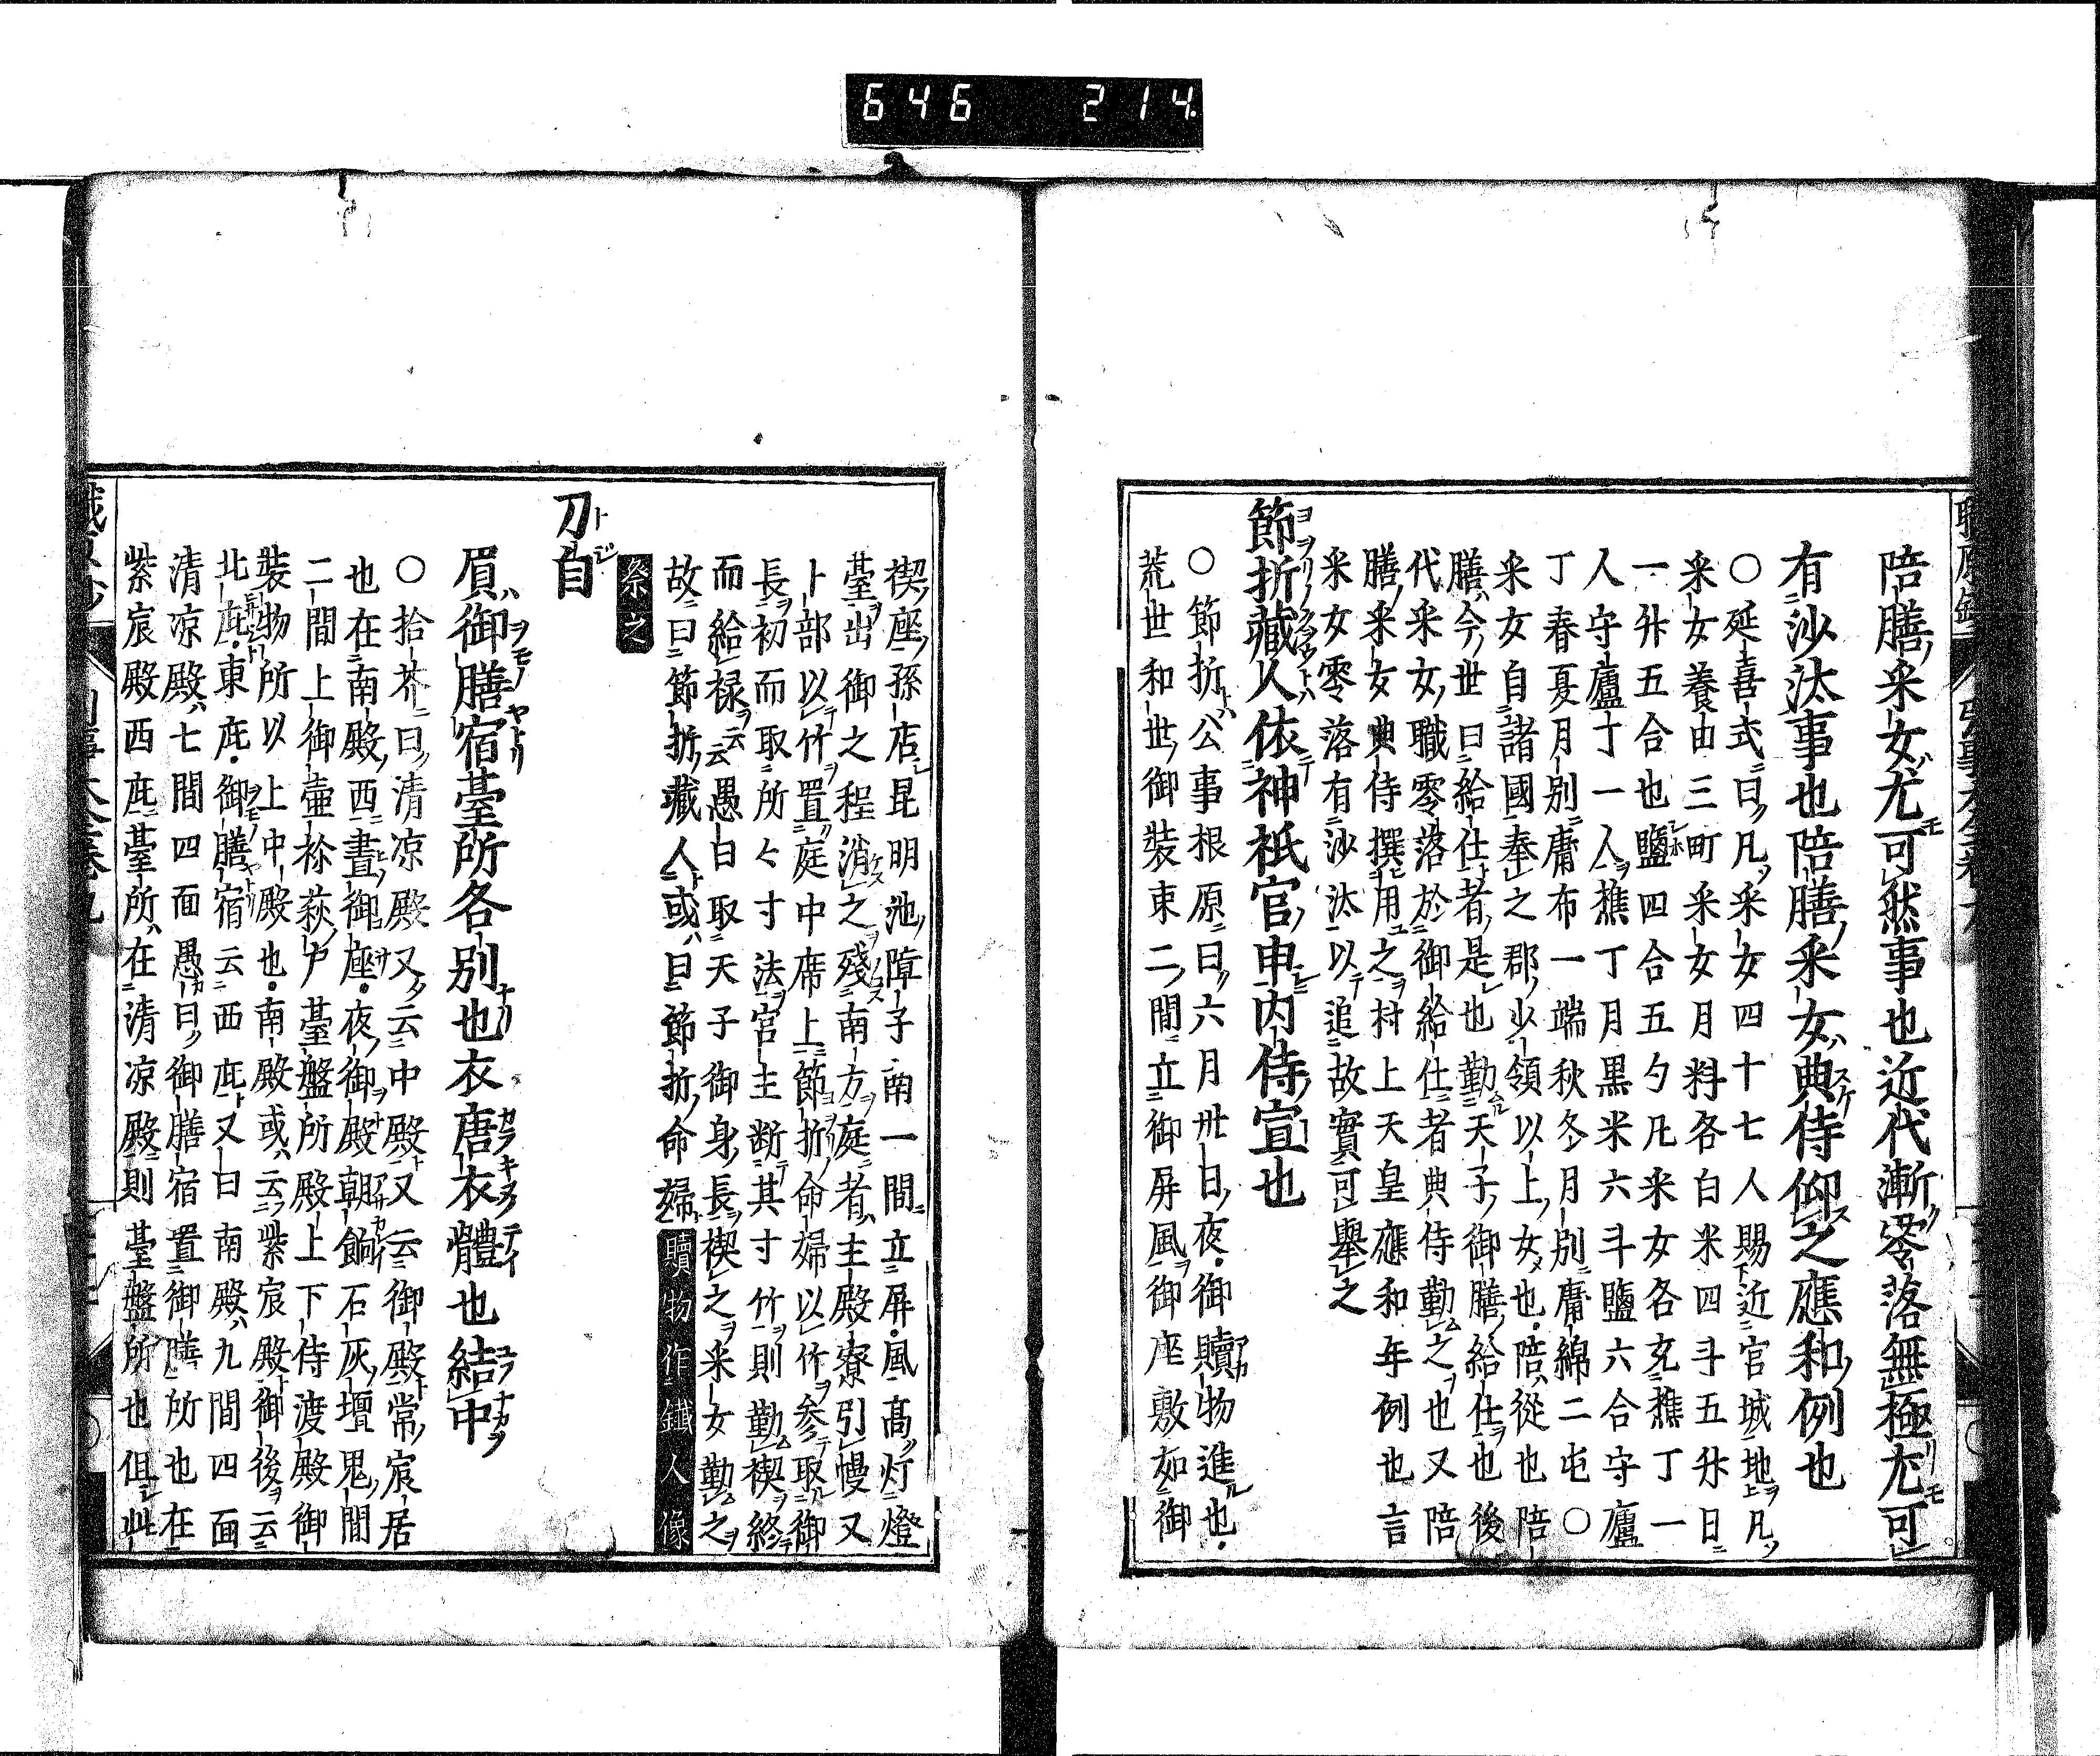 646 214
陪膳采女尤可然事也近代漸零落無極尤可
有沙汰事也陪膳采女典侍仰之應和例也
○延喜式曰凡采女四十七人賜近官城地凡
采女養田三町采女月料各白米四斗五升日
一升五合也鹽四合五勺凡采女各充樵丁一
人守廬丁一人樵丁月黒米六斗鹽六合守廬
丁春夏月別庸布一端秋冬月別庸綿二屯○
采女自諸國奉之郡少領以上女也陪從也陪
膳今世曰給仕者是也勤天子御膳給仕也後
代采女職零落於御給仕者典侍勤之也又陪
膳采女典侍撰用之村上天皇應和年例也言
采女零落有沙汰以追故實可舉之
節折藏人依神祇官申内侍宣也
○節折公事根原曰六月卅日夜御贖物進也
荒世和世御装束二間立御屏風御座敷如御
禊座孫店昆明池障子南一間立屏風高灯燈
臺出御之程消之殘南方庭者主殿寮引幔又
卜部以竹置庭中席上節折命婦以竹参取御
長初而取所々寸法官主断其寸竹則勤禊終
而給禄云愚白取天子御身長禊之采女勤之
故曰節折藏人或曰節折命婦贖物作鐵人像
祭之
刀自
眉御膳宿臺所各別也衣唐衣體也結中
○拾芥曰清凉殿又云中殿又云御殿常宸居
也在南殿西晝御座夜御殿朝餉石灰壇鬼間
二間上御壷枌萩戸臺盤所殿上下侍渡殿御
装物所以上中殿也南殿或云紫宸殿御後云
北庇東庇御膳宿云西庇又曰南殿九間四面
清凉殿七間四面愚曰御膳宿置御膳所也在
紫宸殿西庇臺所在清凉殿則臺盤所也但此